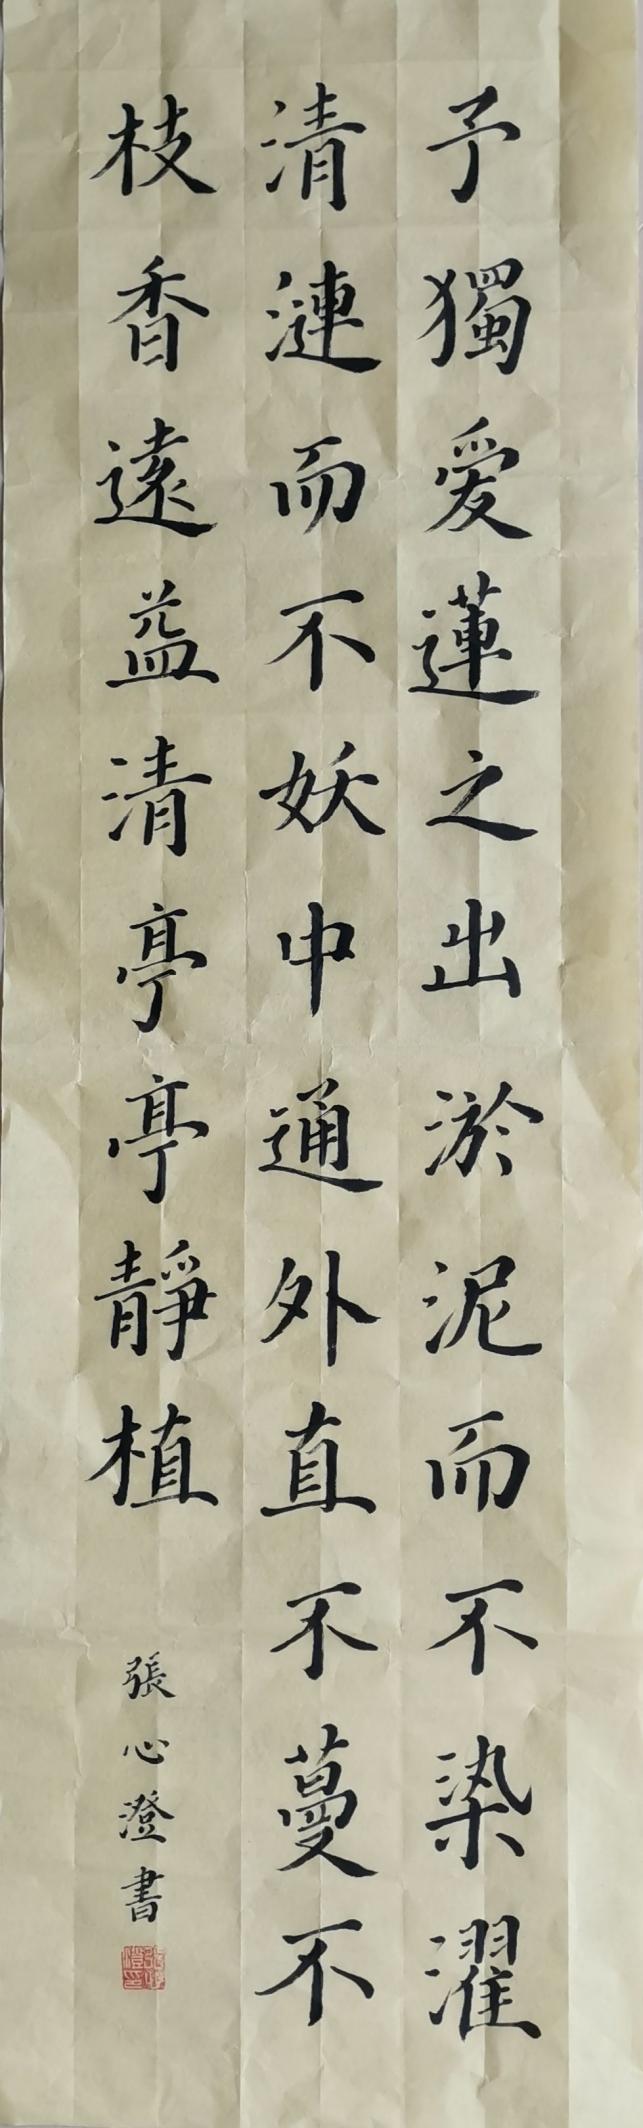 予獨愛蓮之出淤泥而不染濯
清漣而不妖中通外直不蔓不
枝香遠益清亭亭靜植
張心澄書